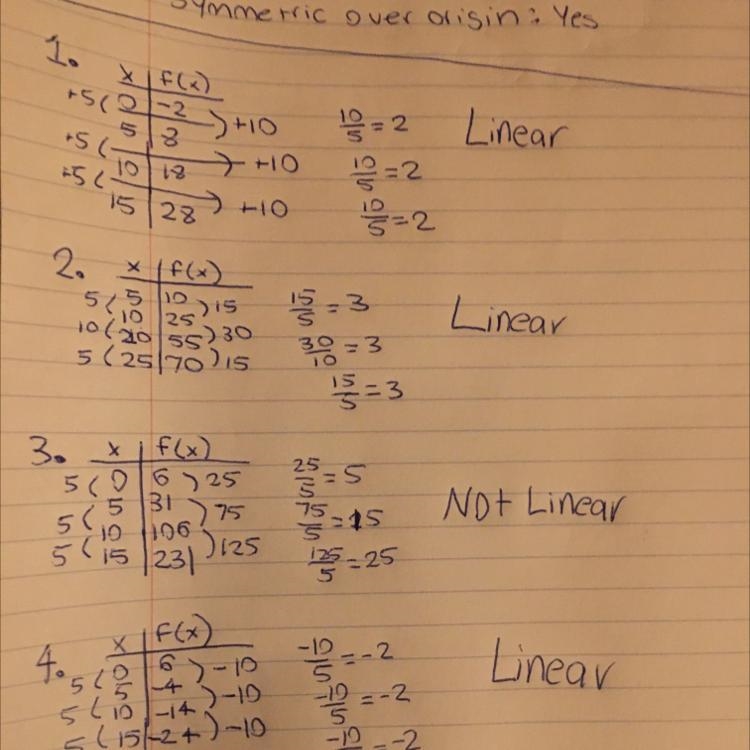 Symmetric over origin: Yes
1.
x | f(x)
+5 ( 0 | -2 ) +10 10/5 = 2 Linear
+5 ( 5 | 8
+5 ( 10 | 18 +10 10/5 = 2
15 | 28 +10 10/5 = 2
2. x | f(x)
5 ( 5 | 10 ) 15 15/5 = 3 Linear
10 ( 10 | 25 ) 30 30/10 = 3
5 ( 20 | 55
25 | 70 ) 15 15/5 = 3
3. x | f(x)
5 ( 0 | 6 ) 25 25/5 = 5 Not Linear
5 ( 5 | 31 ) 75 75/5 = 15
5 ( 10 | 106 ) 125 125/5 = 25
15 | 231
4. x | f(x)
5 ( 0 | 6 ) -10 -10/5 = -2 Linear
5 ( 5 | -4 ) -10 -10/5 = -2
5 ( 10 | -14 ) -10 -10 = -2
15 | -24